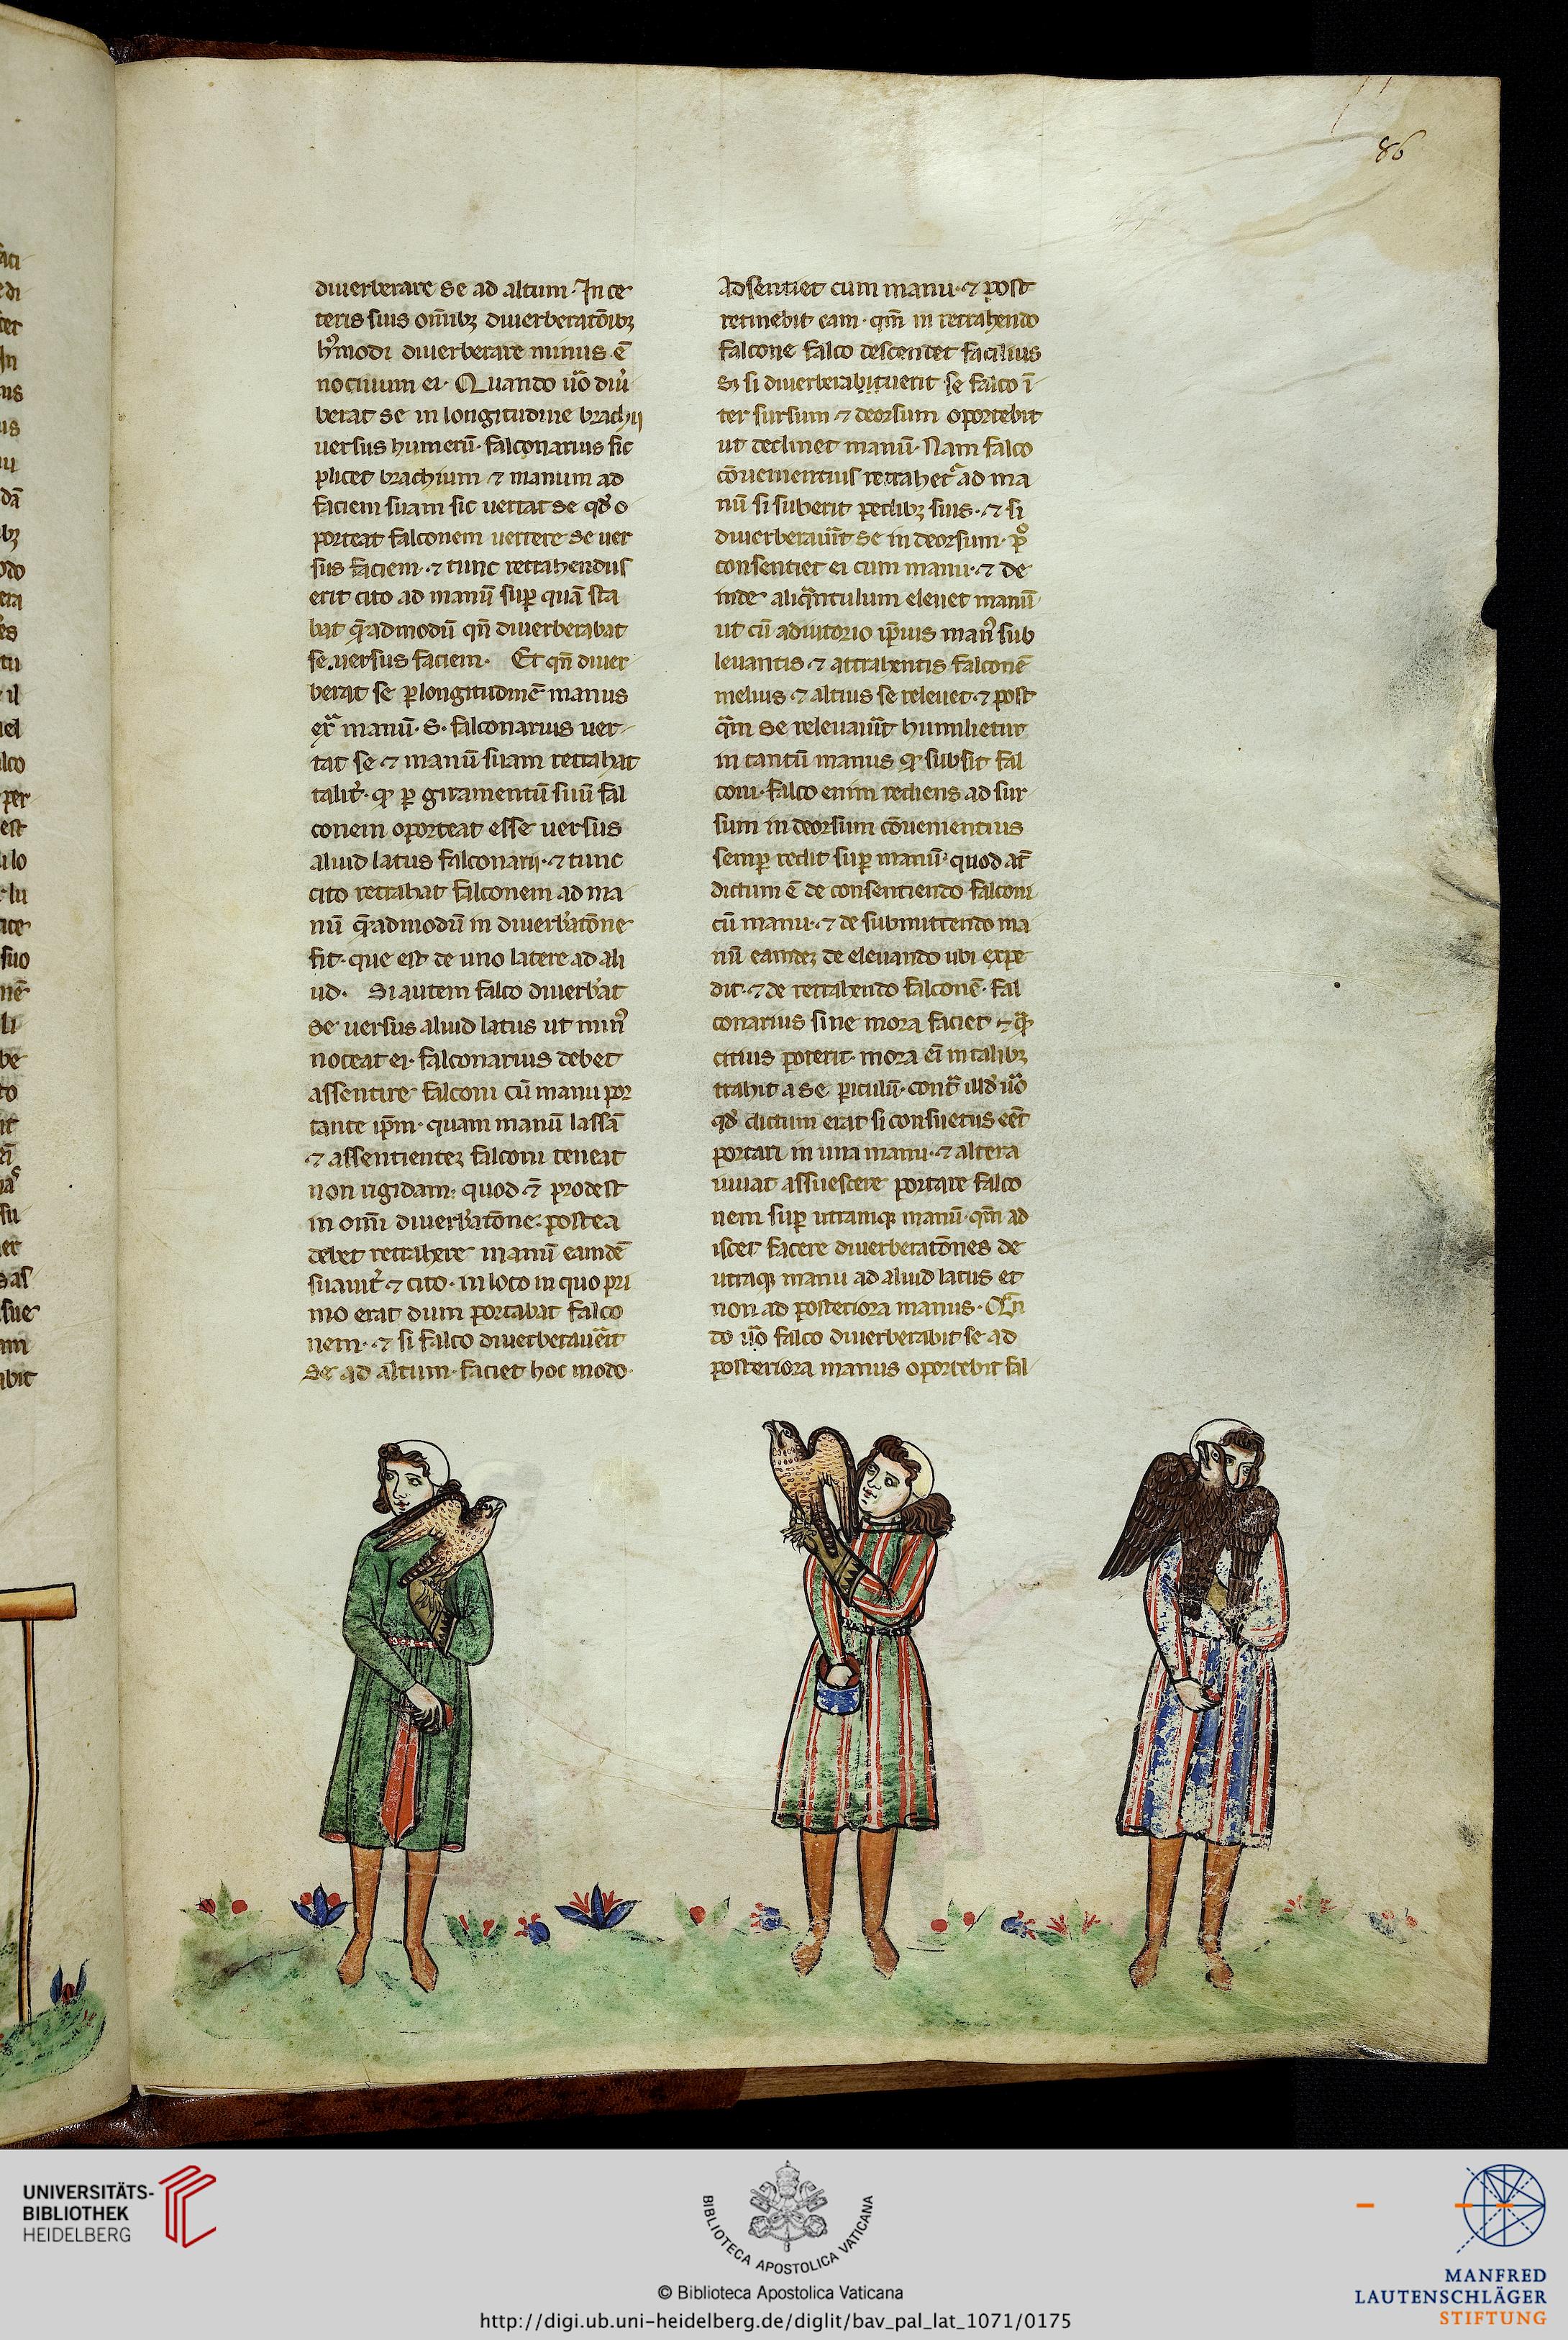 86
diuerberare se ad altum. In ce
teris suis om̄ibꝫ diuerberatōibꝫ
hꝰmodi diuerberare minus ē
nociuum ei. Quando u̾o diu̾
berat se in longitudine brachij
uersus humerū. falconarius sic
plicet brachium ⁊ manum ad
faciem suam sic uertat se qd̾ o
porteat falconem uertere se uer
sus faciem. ⁊ tunc retrahendus
erit cito ad manū suꝑ quā sta
bat q̄admodū qn̄ diuerberabat
se uersus faciem. Et qn̄ diuer
berat se ꝑ longitudinē manus
ex̄ manū. S. falconarius uer
tat se ⁊ manū suam retrahat
talit̾. ꝙ ꝑ giramentū suū fal
conem oporteat esse uersus
aliud latus falconarij. ⁊ tunc
cito retrahat falconem ad ma
nū q̄admodū in diuerb̾atōne
fit. que est de uno latere ad ali
ud. Si autem falco diuerb̾at
se uersus aliud latus ut minꝰ
noceat ei. falconarius debet
assentire falconi cū manu por
tante ip̄m. quam manū lassā
⁊ assentientez falconi teneat
non rigidam. quod ⁊̄ prodest
in om̄i diuerb̾atōne. postea
debet retrahere manū eamdē
suauit̾ ⁊ cito. in loco in quo pri
mo erat dum portabat falco
nem. ⁊ si falco diuerberau̾it
se ad altum. faciet hoc modo.
Adsentiet cum manu. ⁊ post
retinebit eam. qm̄ in retrahendo
falcone falco descendet facilius
Sꝫ si diuerberabituerit se falco ī
ter sursum ⁊ deorsum oportebit
ut declinet manū. Nam falco
cōuenientius retrahet̾ ad ma
nū si suberit pedibꝫ suis. ⁊ si
diuerberau̾it se in deorsum. pº
consentiet ei cum manu. ⁊ de
inde aliqn̄tulum eleuet manū
ut cū adiutorio ip̄ius manꝰ sub
leuantis ⁊ attrahentis falconē
melius ⁊ altius se releuet. ⁊ post
q̄m se releuau̾it humilietur
in tantū manus ꝙ subsit fal
coni. falco enim rediens ad sur
sum in deorsum cōuenientius
semꝑ redit suꝑ manū. quod at̄
dictum ē de consentiendo falconi
cū manu. ⁊ de submittendo ma
nū eamdez de eleuando ubi expe
dit. ⁊ de retrahendo falconē. fal
conarius sine mora faciet ⁊ q̄
citius poterit. mora ei̅ in talibꝫ
trahit a se ꝑiculū. cont̄ illd̾ u̾o
qd̾ dictum erat si consuetus eēt
portari in una manu. ⁊ altera
iuuat assuescere portare falco
nem suꝑ utramqꝫ manū. qm̄ ad
iscet facere diuerberatōnes de
utraqꝫ manu ad aliud latus et
non ad posteriora manus. Qn̄
do u̾o falco diuerberabit se ad
posteriora manus oportebit fal
UNIVERSITÄTS-
BIBLIOTHEK
HEIDELBERG
BIBLIOTECA APOSTOLICA VATICANA
© Biblioteca Apostolica Vaticana
http://digi.ub.uni-heidelberg.de/diglit/bav_pal_lat_1071/0175
MANFRED
LAUTENSCHLÄGER
STIFTUNG